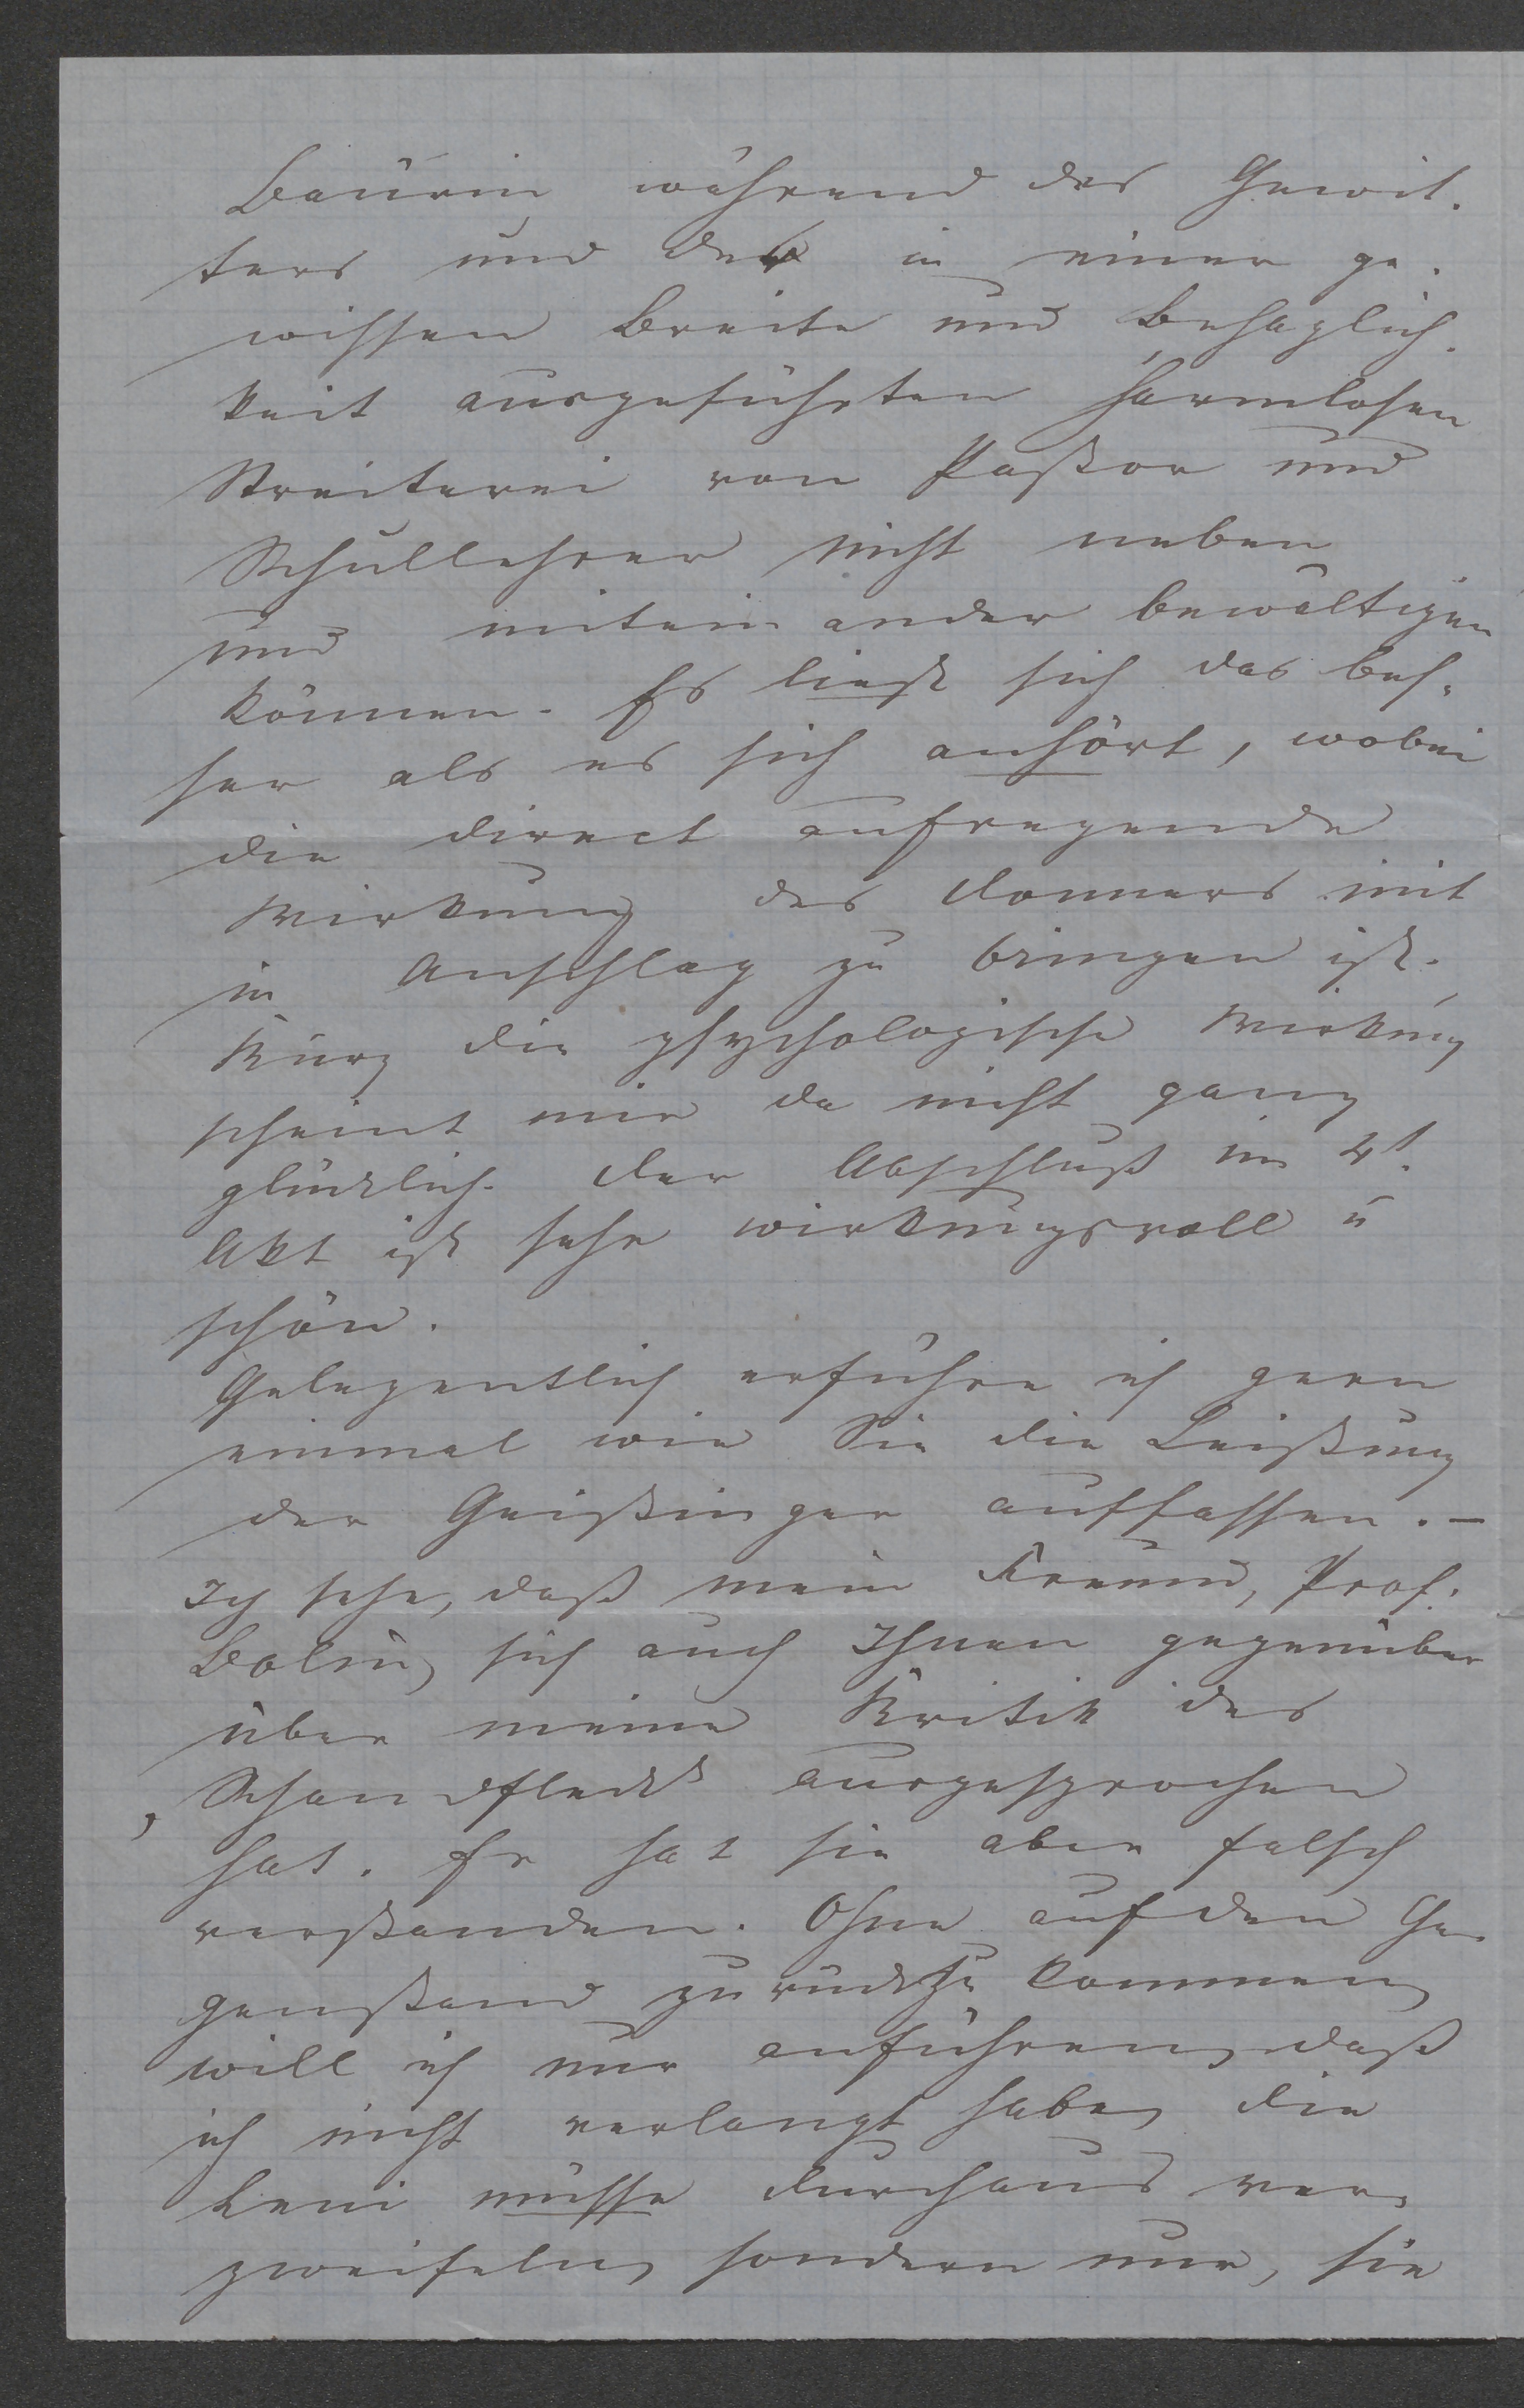 Bäurin während des Gewit-
ters und der in einer ge-
wissen Breite und Behaglich-
keit ausgeführten harmlosen
Streiterei von Pastor und
Schullehrer nicht neben
und mitein ander bewältigen
können. Es liest sich das bes-
ser als es sich anhört, wobei
die direct aufregende
Wirkung des Donners mit
in Anschlag zu bringen ist.
Kurz die psychologische Wirkung
scheint mir da nicht ganz
glücklich. Der Abschluß im 4t.
Akt ist sehr wirkungsvoll u
schön.
Gelegentlich erführe ich gern
einmal wie Sie die Leistung
der Geistinger auffassen. –
Ich sehe, daß mein Freund, Prof.
Bolin, sich auch Ihnen gegenüber
über meine Kritik des
„Schandfleck“ ausgesprochen
hat. Er hat sie aber falsch
verstanden. Ohne auf den Ge-
genstand zurückzu kommen,
will ich nur anführen, daß
ich nicht verlangt habe, die
Leni müsse durchaus ver-
zweifeln, sondern nur, sie